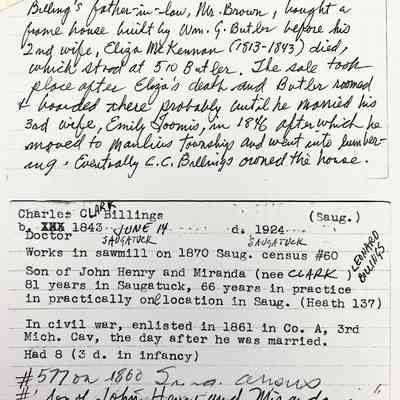 Billing's father-in-law, Mr. Brown, bought a
frame house built by Wm. G. Butler before his
2nd wife, Eliza McKennan (1813-1843) died,
which stood at 510 Butler. The sale took
place after Eliza's death and Butler roomed
& boarded there probably until he married his
3rd wife, Emily Loomis, in 1846 after which he
moved to Manlius Township and went into lumber-
ing. Eventually C.C. Billings owned the house.
Charles CLARK Billings (Saug.)
b. XXX 1843 JUNE 14 d. 1924
Doctor SAUGATUCK SAUGATUCK
Works in sawmill on 1870 Saug. census #60
LEONARD BILLINGS
Son of John Henry and Miranda (nee CLARK )
81 years in Saugatuck, 66 years in practice
in practically one location in Saug. (Heath 137)
In civil war, enlisted in 1861 in Co. A, 3rd
Mich. Cav, the day after he was married.
Had 8 (3 d. in infancy)
#577 on 1860 Saug. census
#1 son of John Henry and Miranda